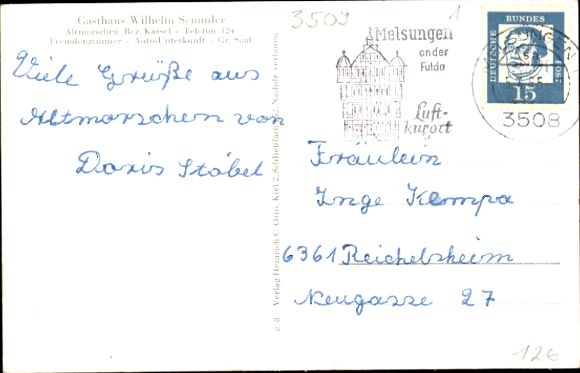 Gasthaus Wilhelm Semmler
Altmorschen Bez. Kassel - Telefon 324
Fremdenzimmer - Auto-Unterkunft - Gr. Saal
Viele Grüße aus
Altmorschen von
Doris Stöbel
Verlag Heinrich C. Otto, Kiel 2, Nachdr. verboten
3509
1
Melsungen
an der
Fulda
Luft-
kurort
DEUTSCHE
BUNDES
POST
15
MELSUNGEN
3508
Fräulein
Inge Kempa
6361 Reichelsheim
Neugasse 27
12€